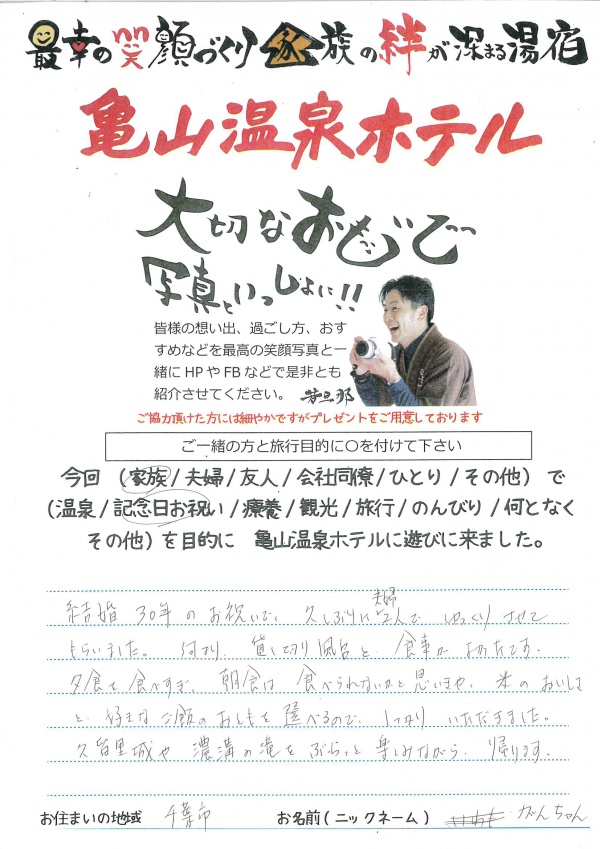 最幸の笑顔づくり 家族の絆が深まる湯宿
亀山温泉ホテル
大切なおもいで
写真といっしょに!!
皆様の想い出、過ごし方、おす
すめなどを最高の笑顔写真と一
緒に HP や FB などで是非とも
紹介させてください。 若旦那
ご協力頂けた方には細やかですがプレゼントをご用意しております
ご一緒の方と旅行目的に〇を付けて下さい
今回 (家族/夫婦/友人/会社同僚/ひとり/その他) で
(温泉/記念日お祝い/療養/観光/旅行/のんびり/何となく
その他) を目的に 亀山温泉ホテルに遊びに来ました。
夫婦
結婚 30年 の お祝いで、久しぶりに 二人で ゆっくり させて
もらいました。 何より、貸し切り風呂と、食事が よかったです。
夕食を 食べすぎ、朝食は 食べられないかと 思いきや、米の おいしさ
と、好きな ご飯の おともを 選べるので、しっかり いただきました。
久留里城や 濃溝の滝を ぶらっと 楽しみながら、帰ります。
お住まいの地域 千葉市 お名前(ニックネーム) がんちゃん